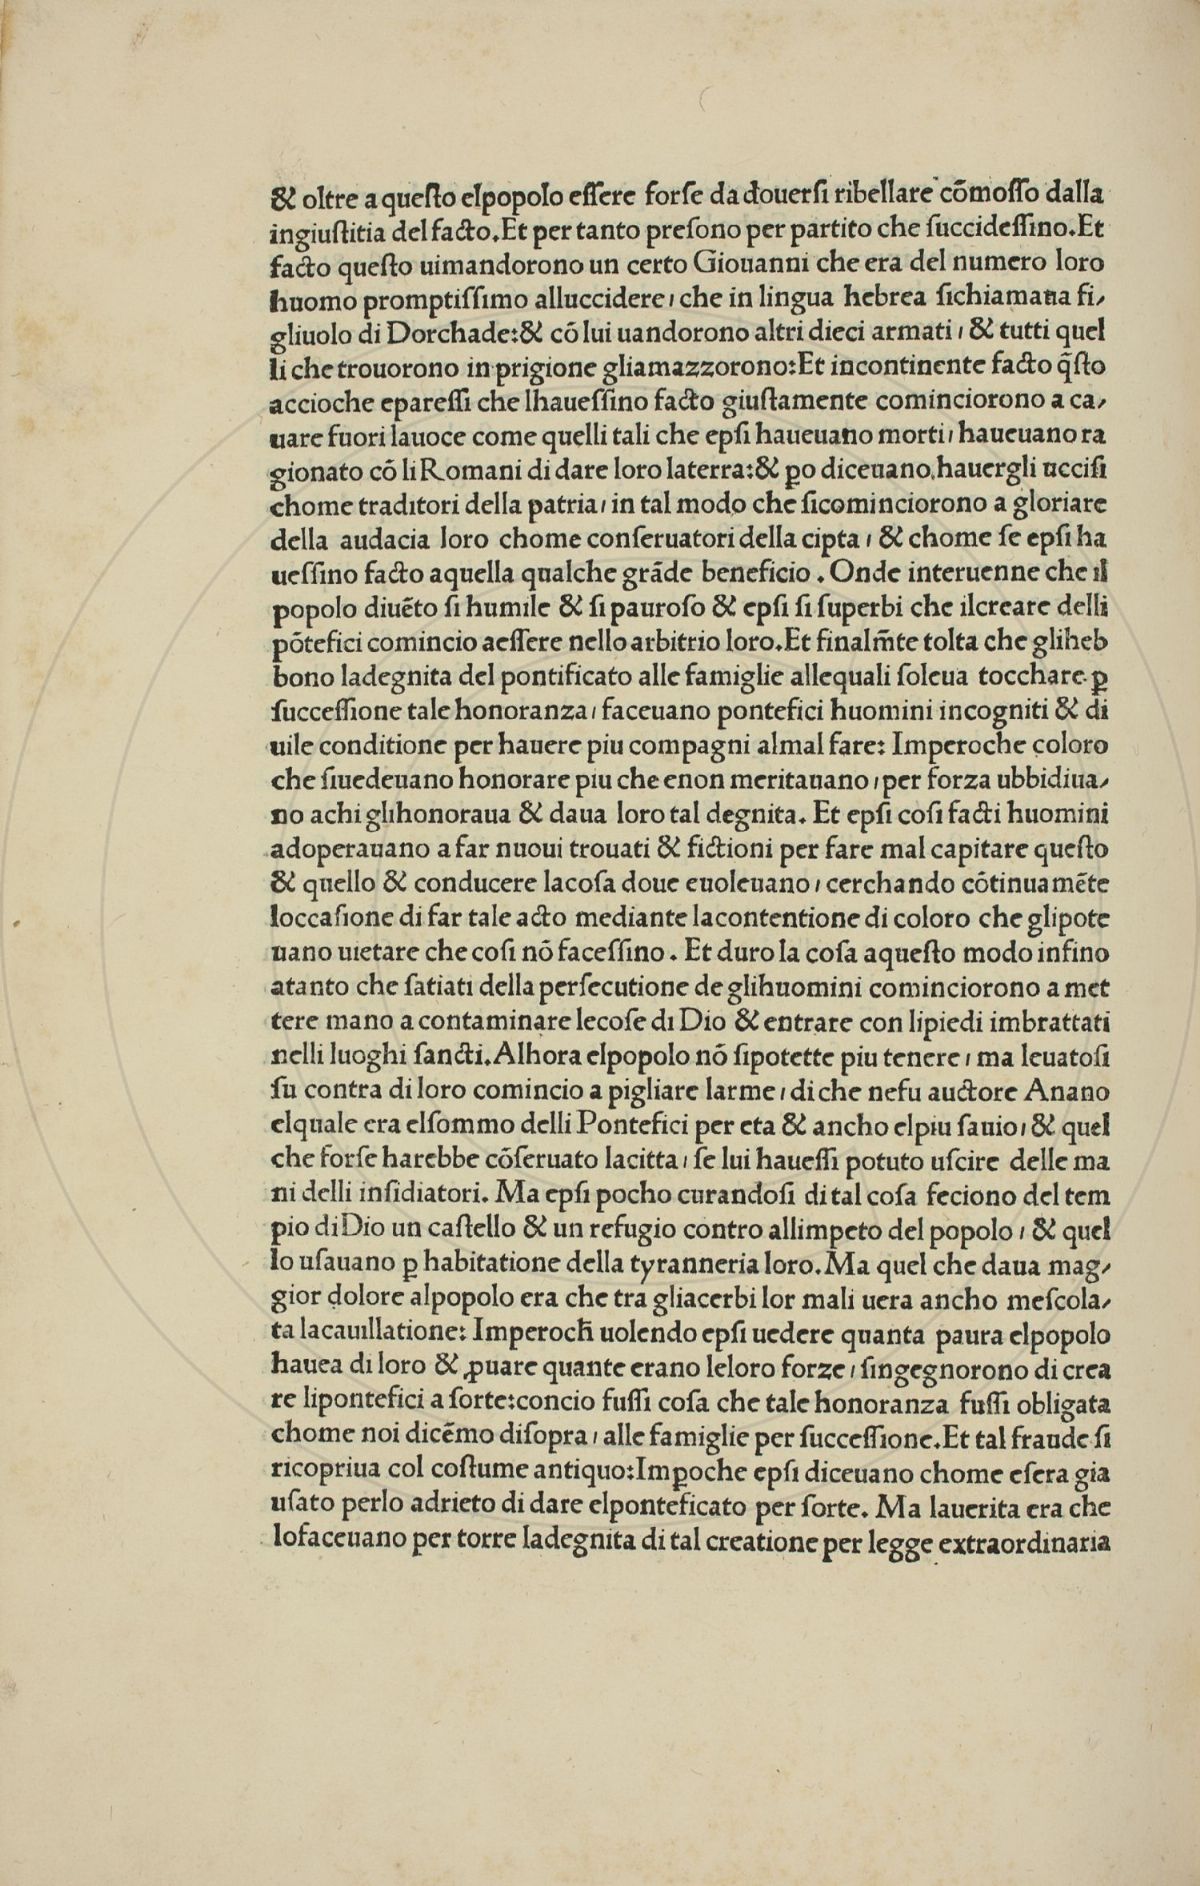 & oltre a queſto elpopolo eſſere forſe da douerſi ribellare cōmoſſo dalla
ingiuſtitia del facto.Et per tanto preſono per partito che ſuccideſſino.Et
facto queſto uimandorono un certo Giouanni che era del numero loro
huomo promptiſſimo alluccidere, che in lingua hebrea ſichiamaua fi/
gliuolo di Dorchade:& cō lui uandorono altri dieci armati, & tutti quel
li che trouorono in prigione gliamazzorono:Et incontinente facto q̄ſto
accioche epareſſi che lhaueſſino facto giuſtamente cominciorono a ca/
uare fuori lauoce come quelli tali che epſi haueuano morti, haueuano ra
gionato cō li Romani di dare loro laterra:& ꝑo diceuano hauergli ucciſi
chome traditori della patria, in tal modo che ſicominciorono a gloriare
della audacia loro chome conſeruatori della cipta, & chome ſe epſi ha
ueſſino facto aquella qualche grāde beneficio . Onde interuenne che il
popolo diuēto ſi humile & ſi pauroſo & epſi ſi ſuperbi che ilcreare delli
pōtefici comincio aeſſere nello arbitrio loro.Et finalm̄te tolta che gliheb
bono ladegnita del pontificato alle famiglie allequali ſoleua tocchare ꝑ
ſucceſſione tale honoranza, faceuano pontefici huomini incogniti & di
uile conditione per hauere piu compagni almal fare: Imperoche coloro
che ſiuedeuano honorare piu che enon meritauano, per forza ubbidiua/
no achi glihonoraua & daua loro tal degnita. Et epſi coſi facti huomini
adoperauano a far nuoui trouati & fictioni per fare mal capitare queſto
& quello & conducere lacoſa doue euoleuano, cerchando cōtinuamēte
loccaſione di far tale acto mediante lacontentione di coloro che glipote
uano uietare che coſi nō faceſſino . Et duro la coſa aqueſto modo infino
atanto che ſatiati della perſecutione de glihuomini cominciorono a met
tere mano a contaminare lecoſe di Dio & entrare con lipiedi imbrattati
nelli luoghi ſancti.Alhora elpopolo nō ſipotette piu tenere, ma leuatoſi
ſu contra di loro comincio a pigliare larme, di che nefu auctore Anano
elquale era elſommo delli Pontefici per eta & ancho elpiu ſauio, & quel
che forſe harebbe cōſeruato lacitta, ſe lui haueſſi potuto uſcire delle ma
ni delli inſidiatori. Ma epſi pocho curandoſi di tal coſa feciono del tem
pio di Dio un caſtello & un refugio contro allimpeto del popolo, & quel
lo uſauano ꝑ habitatione della tyranneria loro.Ma quel che daua mag/
gior dolore alpopolo era che tra gliacerbi lor mali uera ancho meſcola/
ta lacauillatione: Imperoch̄ uolendo epſi uedere quanta paura elpopolo
hauea di loro & ꝓuare quante erano leloro forze, ſingegnorono di crea
re lipontefici a ſorte:concio fuſſi coſa che tale honoranza fuſſi obligata
chome noi dicēmo diſopra, alle famiglie per ſucceſſione.Et tal fraude ſi
ricopriua col coſtume antiquo:Imꝑoche epſi diceuano chome eſera gia
uſato perlo adrieto di dare elponteficato per ſorte. Ma lauerita era che
lofaceuano per torre ladegnita di tal creatione per legge extraordinaria